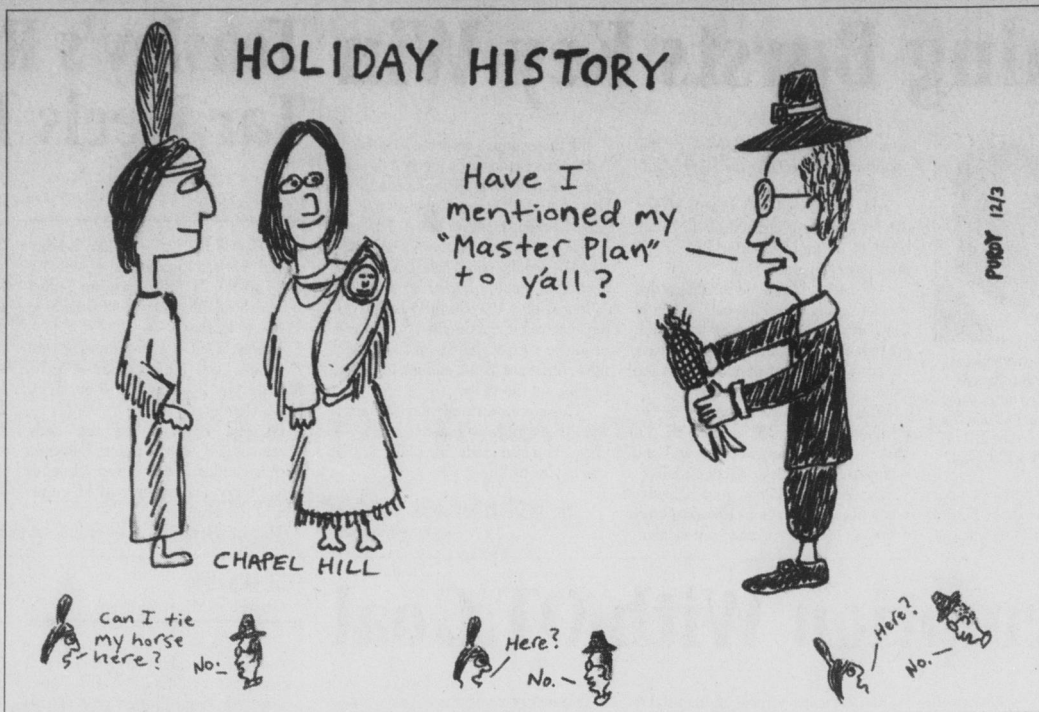 HOLIDAY HISTORY
Have I
mentioned my
"Master Plan"
to y'all?
PURDY 12/3
CHAPEL HILL
Can I tie
my horse
here?
No.
Here?
No.
Here?
No.